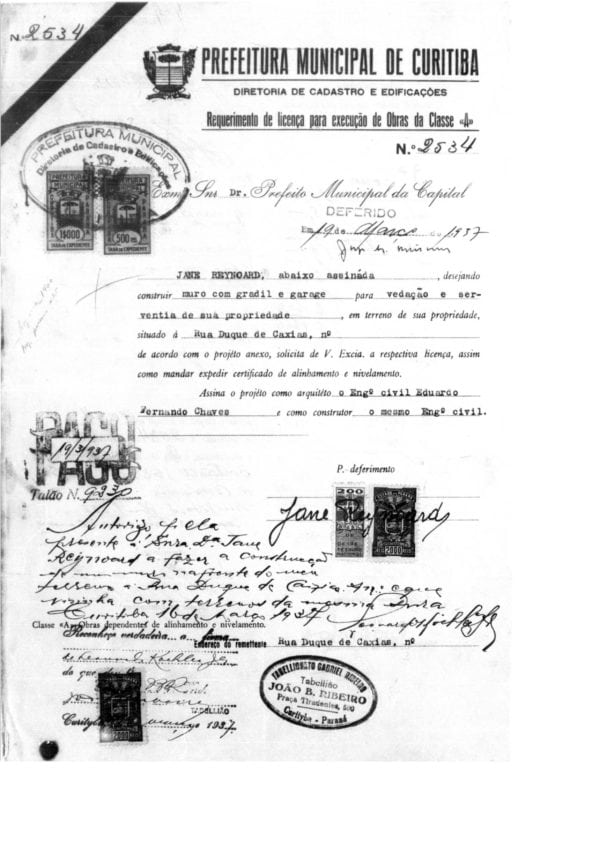 N. 2534
PREFEITURA MUNICIPAL DE CURITIBA
DIRETORIA DE CADASTRO E EDIFICAÇÕES
Requerimento de licença para execução de Obras da Classe «A»
N.º 2534
PREFEITURA MUNICIPAL
Diretoria de Cadastro e Edificações
1$000
TAXA DE EXPEDIENTE
500 rs
TAXA DE EXPEDIENTE
Exmo Snr Dr. Prefeito Municipal da Capital
DEFERIDO
Em 19 de Março de 1937
JANE REYNOARD, abaixo assinada, desejando
construir muro com gradil e garage para vedação e ser-
ventia de sua propriedade, em terreno de sua propriedade,
situado á Rua Duque de Caxias, nº
de acordo com o projéto anexo, solicita de V. Excia. a respectiva licença, assim
como mandar expedir certificado de alinhamento e nivelamento.
Assina o projéto como arquitéto o Engº civil Eduardo
Fernando Chaves e como construtor o mesmo Engº civil.
PAGO
19/3/937
PAGO
Talão N. 9230
P. deferimento
200
2000
Jane Reynoard
Autorizo pela
presente a Snra Da Jane
Reynoard a fazer a construcção
de um muro na frente do meu
terreno a Rua Duque de Caxias
visinha com terrenos da mesma Snra
Curitiba 16 de Março 1937
Classe «A» Obras dependentes de alinhamento e nivelamento.
Reconheço verdadeira a firma
Endereço do remettente Rua Duque de Caxias, nº
do que dou
TABELLIÃO
Curityba 1937
2000
TABELLIONATO GABRIEL RIBEIRO
Tabellião
JOÃO B. RIBEIRO
Praça Tiradentes, 500
Curityba - Paraná